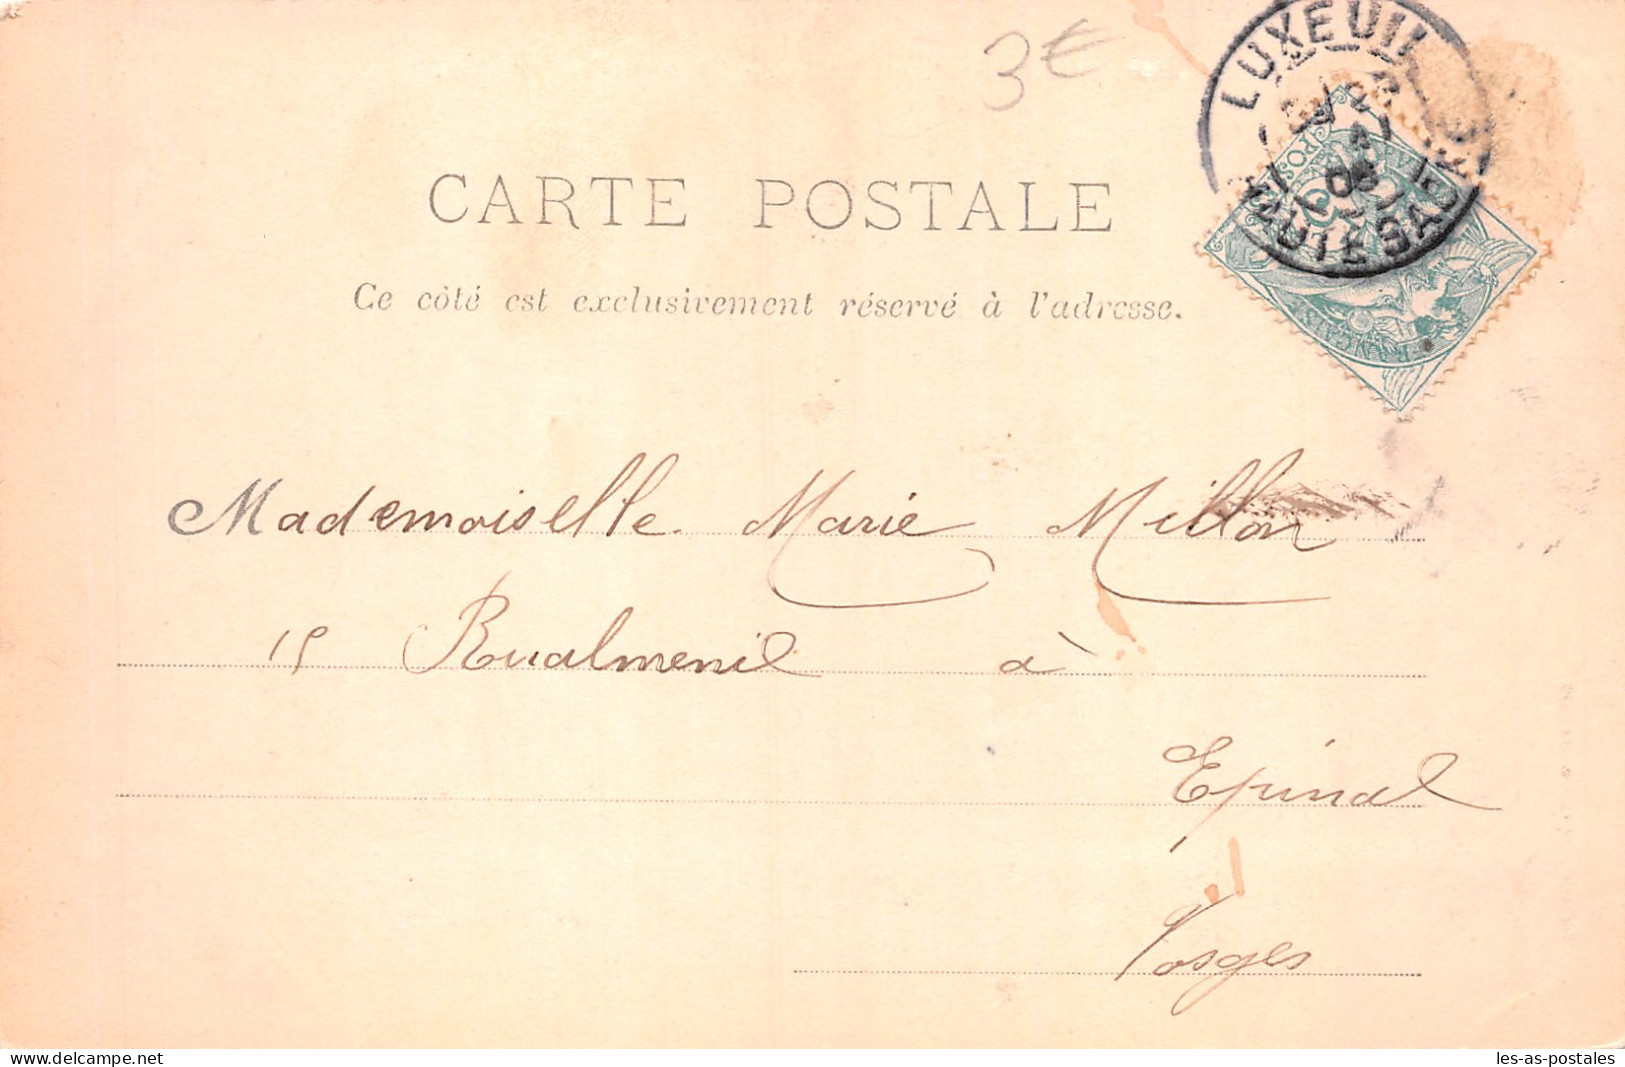 3€
LUXEUIL
HTE SAÔNE
CARTE POSTALE
Ce côté est exclusivement réservé à l'adresse.
Mademoiselle Marie Millon
15 Rualmenil à
Epinal
Vosges
les-as-postales